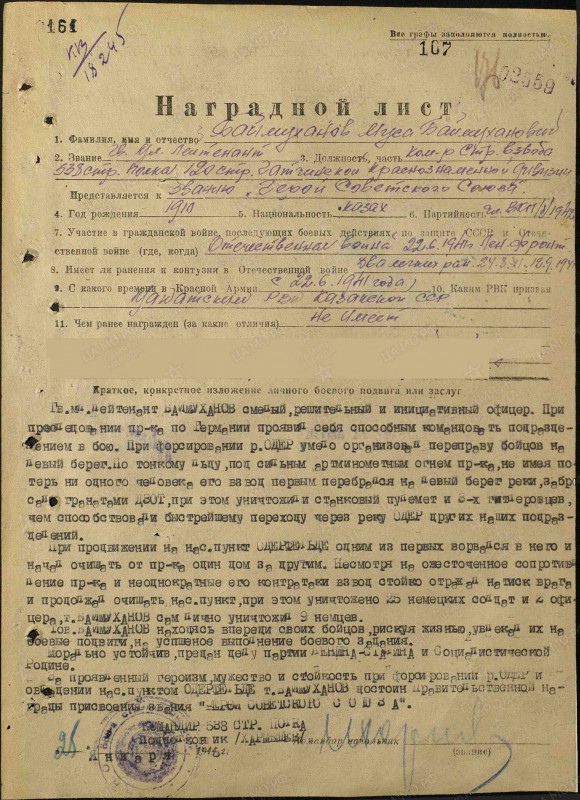 161
Все графы заполняются полностью.
107
Наградной лист
1. Фамилия, имя и отчество Баймуханов Муса Баймуханович
2. Звание Гв. Мл. Лейтенант 3. Должность, часть Ком-р Стр. взвода
538 стр. полка 120 стр. Гатчинской Краснознаменной дивизии
Представляется к званию "Герой Советского Союза"
4. Год рождения 1911 5. Национальность казах 6. Партийность
7. Участие в гражданской войне, последующих боевых действиях по защите СССР и Отече-
ственной войне (где, когда) Отечественная война 22.6.1941 Лен. фронт
8. Имеет ли ранения и контузия в Отечественной войне два легких ран.
9. С какого времени в Красной Армии с 22.6.1941 года 10. Каким РВК призван
РВК Казахской ССР
11. Чем ранее награжден (за какие отличия) Не имеет
Краткое, конкретное изложение личного боевого подвига или заслуг
Гв.мл.лейтенант БАЙМУХАНОВ смелый,решительный и инициативный офицер. При
преследовании пр-ка по Германии проявил себя способным командовать подразде-
лением в бою. При форсировании р.ОДЕР умело организовал переправу бойцов на
левый берег.По тонкому льду,под сильным артминометным огнем пр-ка,не имея по-
терь ни одного человека его взвод первым перебрался на левый берег реки,забро
сал гранатами ДЗОТ,при этом уничтожил станковый пулемет и 8-х гитлеровцев,
чем способствовал быстрейшему переходу через реку ОДЕР других наших подраз-
делений.
При продвижении на нас.пункт ОДЕРФЕЛЬДЕ одним из первых ворвался в него и
начал очищать от пр-ка один дом за другим. Несмотря на ожесточенное сопротив
ление пр-ка и неоднократные его контратаки взвод стойко отражал натиск врага
и продолжал очищать нас.пункт,при этом уничтожено 25 немецких солдат и 2 офи-
цера,т.БАЙМУХАНОВ сам лично уничтожил 9 немцев.
Тов.БАЙМУХАНОВ находясь впереди своих бойцов,рискуя жизнью,увлекал их на
боевые подвиги,на успешное выполнение боевого задания.
Морально устойчив,предан делу партии ЛЕНИНА-СТАЛИНА и Социалистической
Родине.
За проявленный героизм,мужество и стойкость при форсировании р.ОДЕР и
овладении нас.пунктом ОДЕРФЕЛЬДЕ т.БАЙМУХАНОВ достоин правительственной на-
грады присвоения звания "ГЕРОЙ СОВЕТСКОГО СОЮЗА".
КОМАНДИР 538 СТР. ПОЛКА
Подполковник /ХАРЛЫШЕВ/ начальник
25 Января 1945г. (звание)